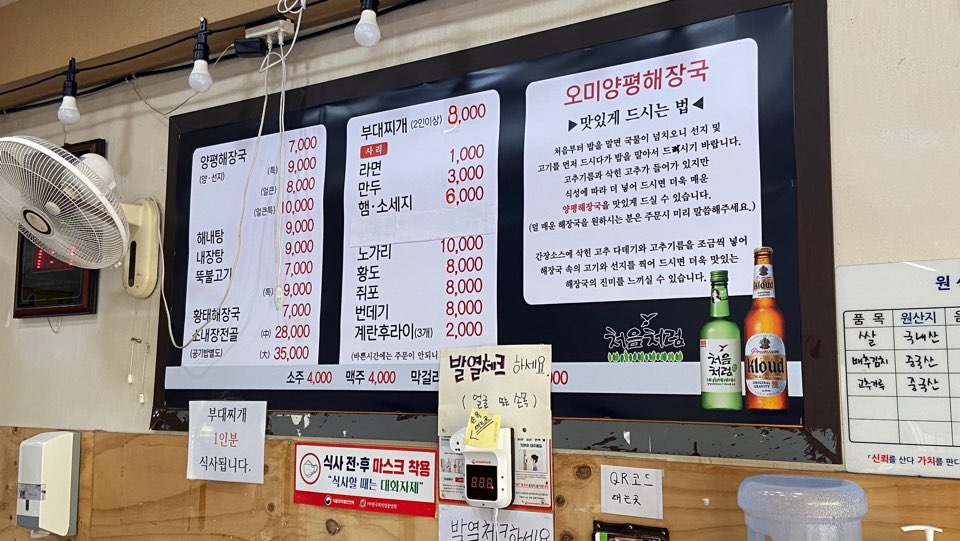 양평해장국 7,000
(양·선지)
(특) 9,000
(얼큰) 8,000
(얼큰특) 10,000
해내탕 9,000
내장탕 9,000
뚝불고기 7,000
(특) 9,000
황태해장국 7,000
소내장전골 (中) 28,000
(공기밥별도) (大) 35,000
부대찌개 (2인이상) 8,000
사리
라면 1,000
만두 3,000
햄·소세지 6,000
노가리 10,000
황도 8,000
쥐포 8,000
번데기 8,000
계란후라이(3개) 2,000
(바쁜시간에는 주문이 안되니
소주 4,000 맥주 4,000 막걸리
오미양평해장국
▶맛있게 드시는 법◀
처음부터 밥을 말면 국물이 넘치오니 선지 및
고기를 먼저 드시다가 밥을 말아서 드시기 바랍니다.
고추기름과 삭힌 고추가 들어가 있지만
식성에 따라 더 넣어 드시면 더욱 매운
양평해장국을 맛있게 드실 수 있습니다.
(덜 매운 해장국을 원하시는 분은 주문시 미리 말씀해주세요.)
간장소스에 삭힌 고추 다데기와 고추기름을 조금씩 넣어
해장국 속의 고기와 선지를 찍어 드시면 더욱 맛있는
해장국의 진미를 느끼실 수 있습니다.
처음처럼
처음처럼
kloud
Premium
kloud
ORIGINAL GRAVITY
품목 원산지
쌀 국내산
배추김치 중국산
고추가루 중국산
「신뢰를 산다 가치를 판다
부대찌개
1인분
식사됩니다.
식사 전·후 마스크 착용
"식사할 때는 대화자제"
발열체크 하세요
(얼굴 또는 손목)
발열체크하세요
QR코드
대는곳